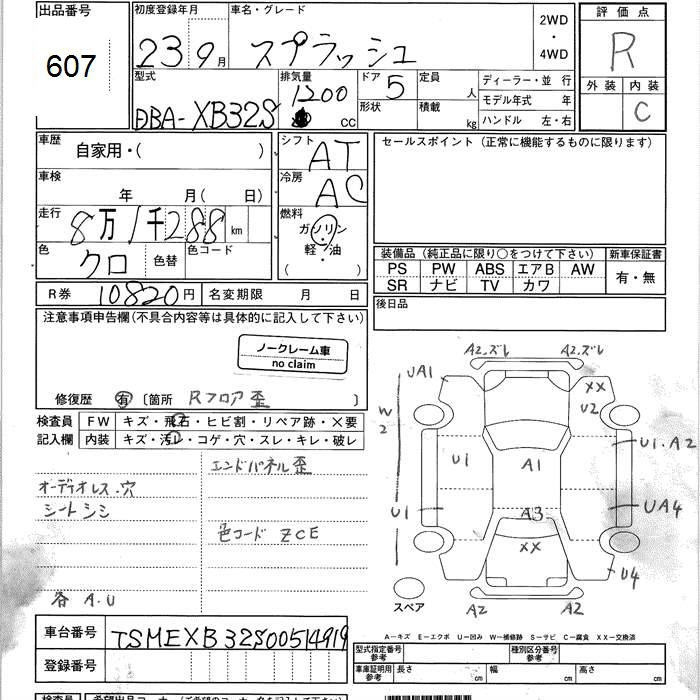 出品番号 607
初度登録年月 23 9月
車名・グレード スプラッシュ
2WD・4WD
評価点 R
外装 内装 C
型式 DBA-XB32S
排気量 1200 CC
ドア 5
形状
定員 人
積載 kg
ディーラー・並行
モデル年式 年
ハンドル 左・右
車歴 自家用・( )
シフト AT
セールスポイント (正常に機能するものに限ります)
車検 年 月(日)
冷房 AC
走行 8万1千288km
燃料 ガソリン 軽・油 ( )
色 クロ 色替 色コード
装備品 (純正品に限り○をつけて下さい) 新車保証書
PS PW ABS エアB AW 有・無
SR ナビ TV カワ
R券 10820円 名変期限 月 日
後日品
注意事項申告欄(不具合内容等は具体的に記入して下さい)
ノークレーム車
no claim
修復歴 有 〔箇所 Rフロア歪 〕
検査員 FW キズ・飛石・ヒビ割・リペア跡・×要
記入欄 内装 キズ・汚レ・コゲ・穴・スレ・キレ・破レ
エンドパネル歪
オーディオレス.穴
シートシミ
色コード ZCE
各 A.U
A2.ズレ A2.ズレ
UA1 XX
W2 U2
U1 A1 U1.A2
U1 A3 UA4
XX
U4
スペア A2 A2
A－キズ E－エクボ U－凹み W－補修跡 S－サビ C－腐食 XX－交換済
車台番号 TSMEXB32S00514919
型式指定番号 参考 種別区分番号 参考
登録番号
車庫証明用 参考 長さ cm 幅 cm 高さ cm